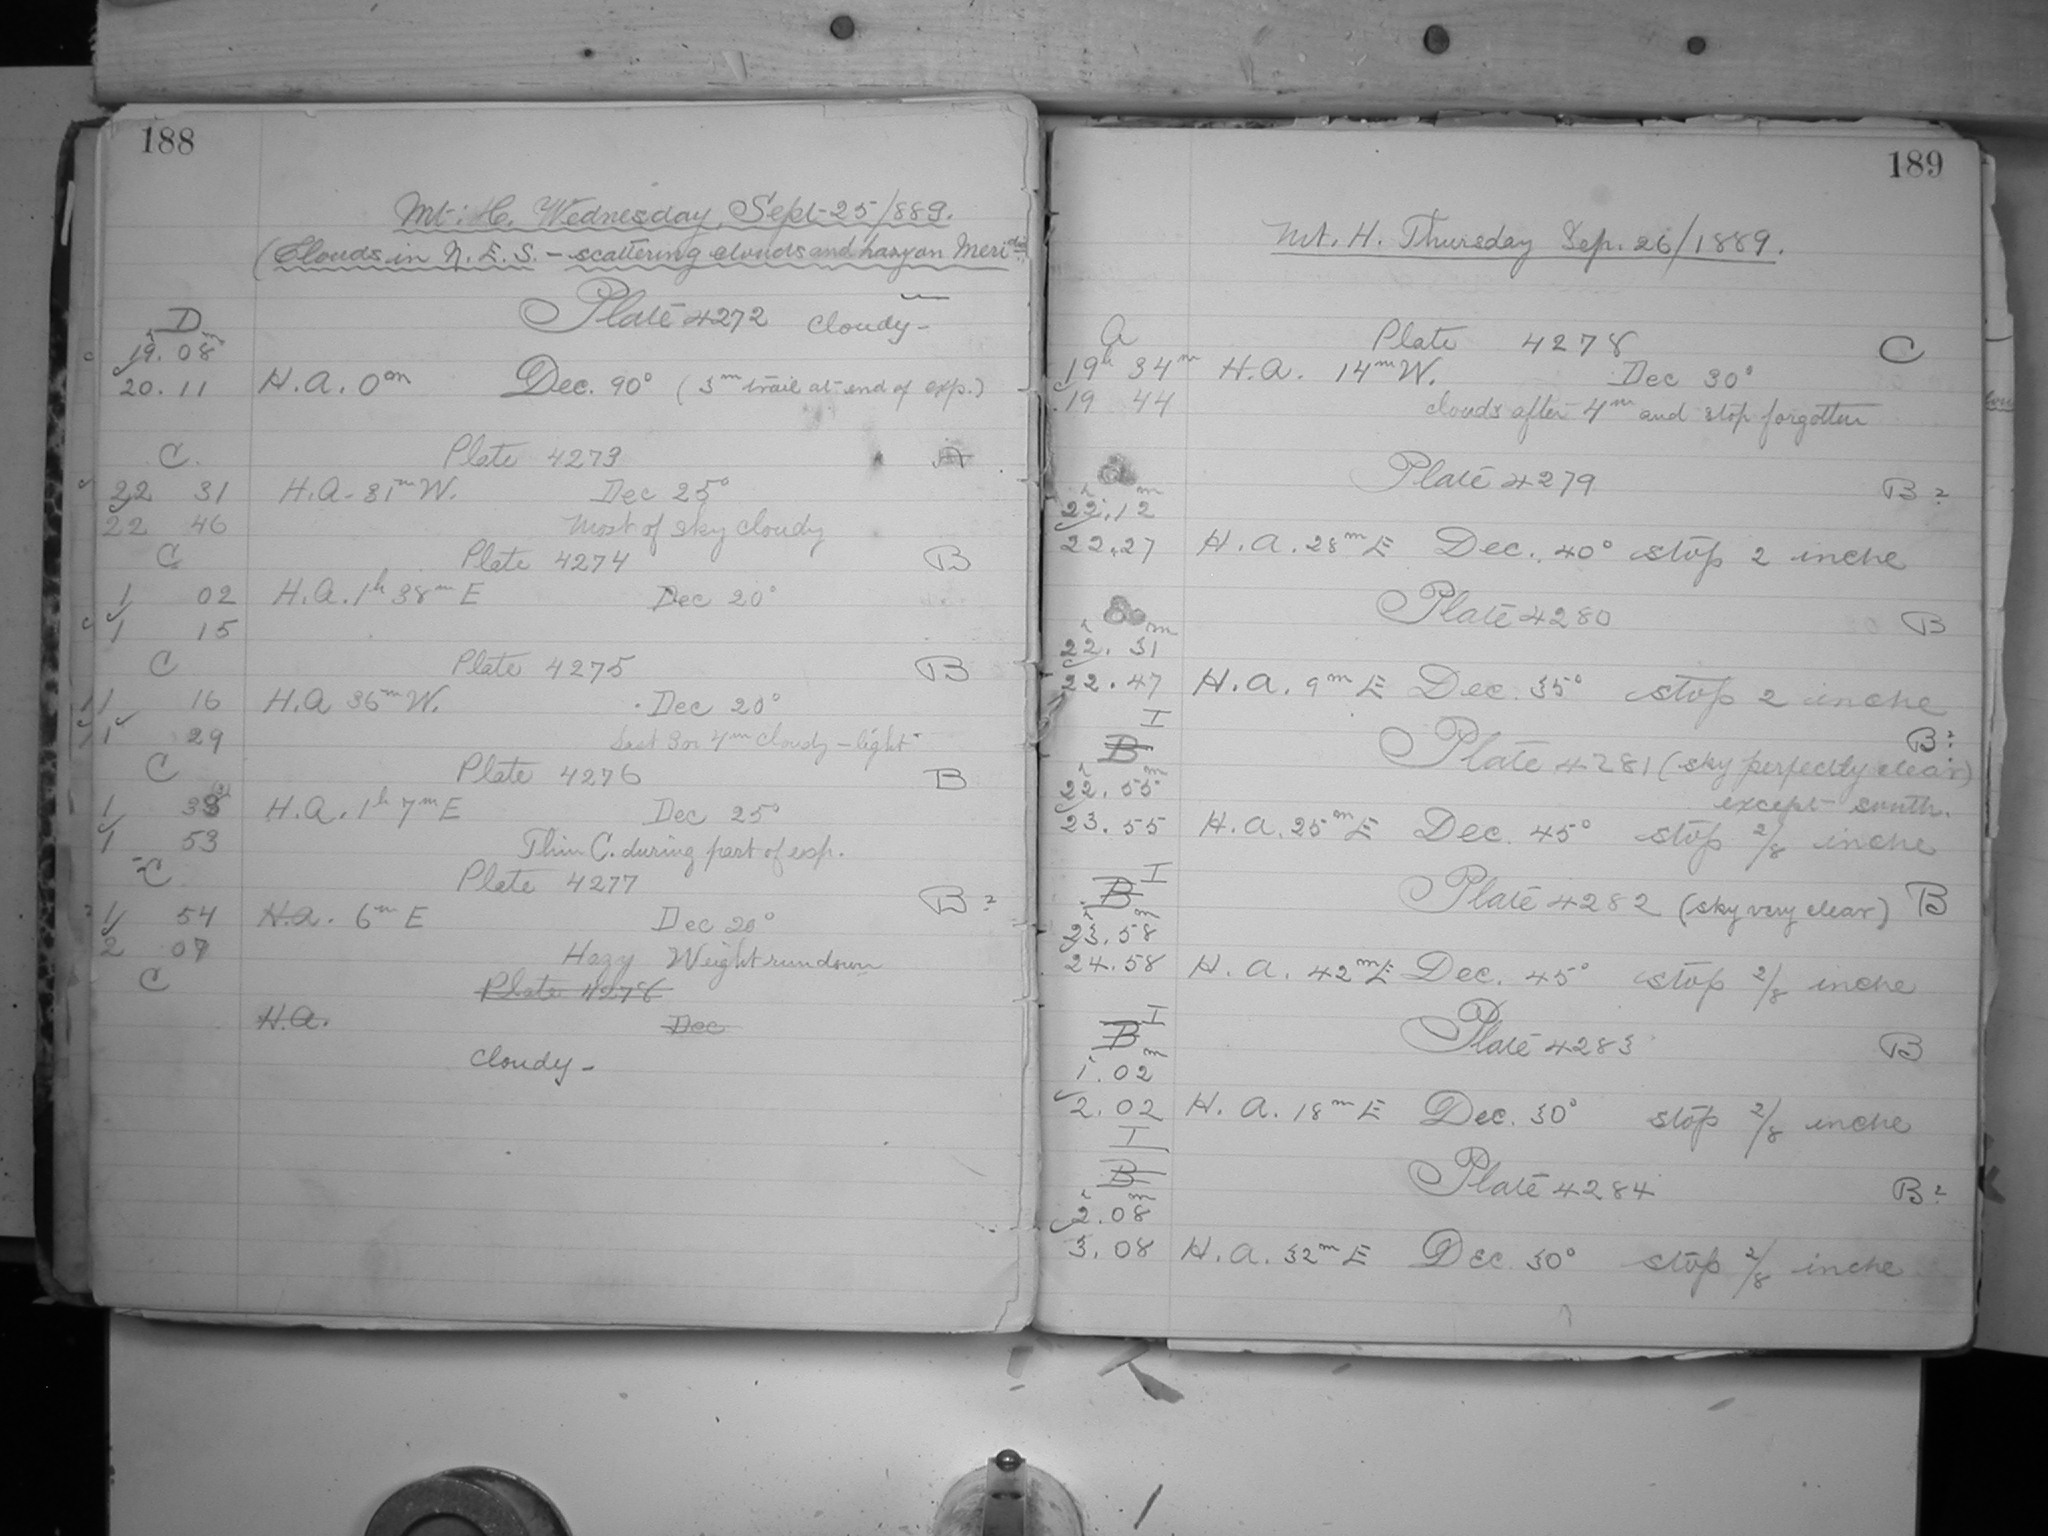 188
Mt: H. Wednesday, Sept-25/889.
(Clouds in N.E.S. - scattering clouds and hazy on Meridian
Plate 4272 cloudy-
D
19h. 08m
20. 11 H.A. 0m Dec. 90° (3m trail at end of exp.)
C. Plate 4273 A
22 31 H.A. 31m W. Dec 25°
22 46 Most of sky cloudy
C Plate 4274 B
1 02 H.A. 1h 38m E Dec 20°
1 15
C Plate 4275 B
1 16 H.A 36m W. Dec 20°
1 29 Last 3 or 4m cloudy - light
C Plate 4276 B
1 38 H.A. 1h 7m E Dec 25°
1 53 Thin C. during part of exp.
C Plate 4277 B?
1 54 H.A. 6m E Dec 20°
2 07 Hazy Weight rundown
C Plate 4278
H.A. Dec
Cloudy-
189
Mt. H. Thursday Sep. 26/1889.
A Plate 4278 C
19h 34m H.A. 14m W. Dec 30°
19 44 clouds after 4m and stop forgotten
Plate 4279 B?
22h.12m
22.27 H.A. 28m E Dec. 40° stop 2 inche
Plate 4280 B
22h. 31m
22.47 H.A. 9m E Dec. 35° stop 2 inche
I
B Plate 4281 (sky perfectly clear) B?
22h. 55m except south.
23.55 H.A. 25m E Dec. 45° stop 2/8 inche
I
B Plate 4282 (sky very clear) B
23h.58m
24.58 H.A. 42m E Dec. 45° stop 2/8 inche
I
B Plate 4283 B
1h.02m
2.02 H.A. 18m E Dec. 30° stop 2/8 inche
I
B Plate 4284 B?
2h.08m
3.08 H.A. 32m E Dec 30° stop 2/8 inche